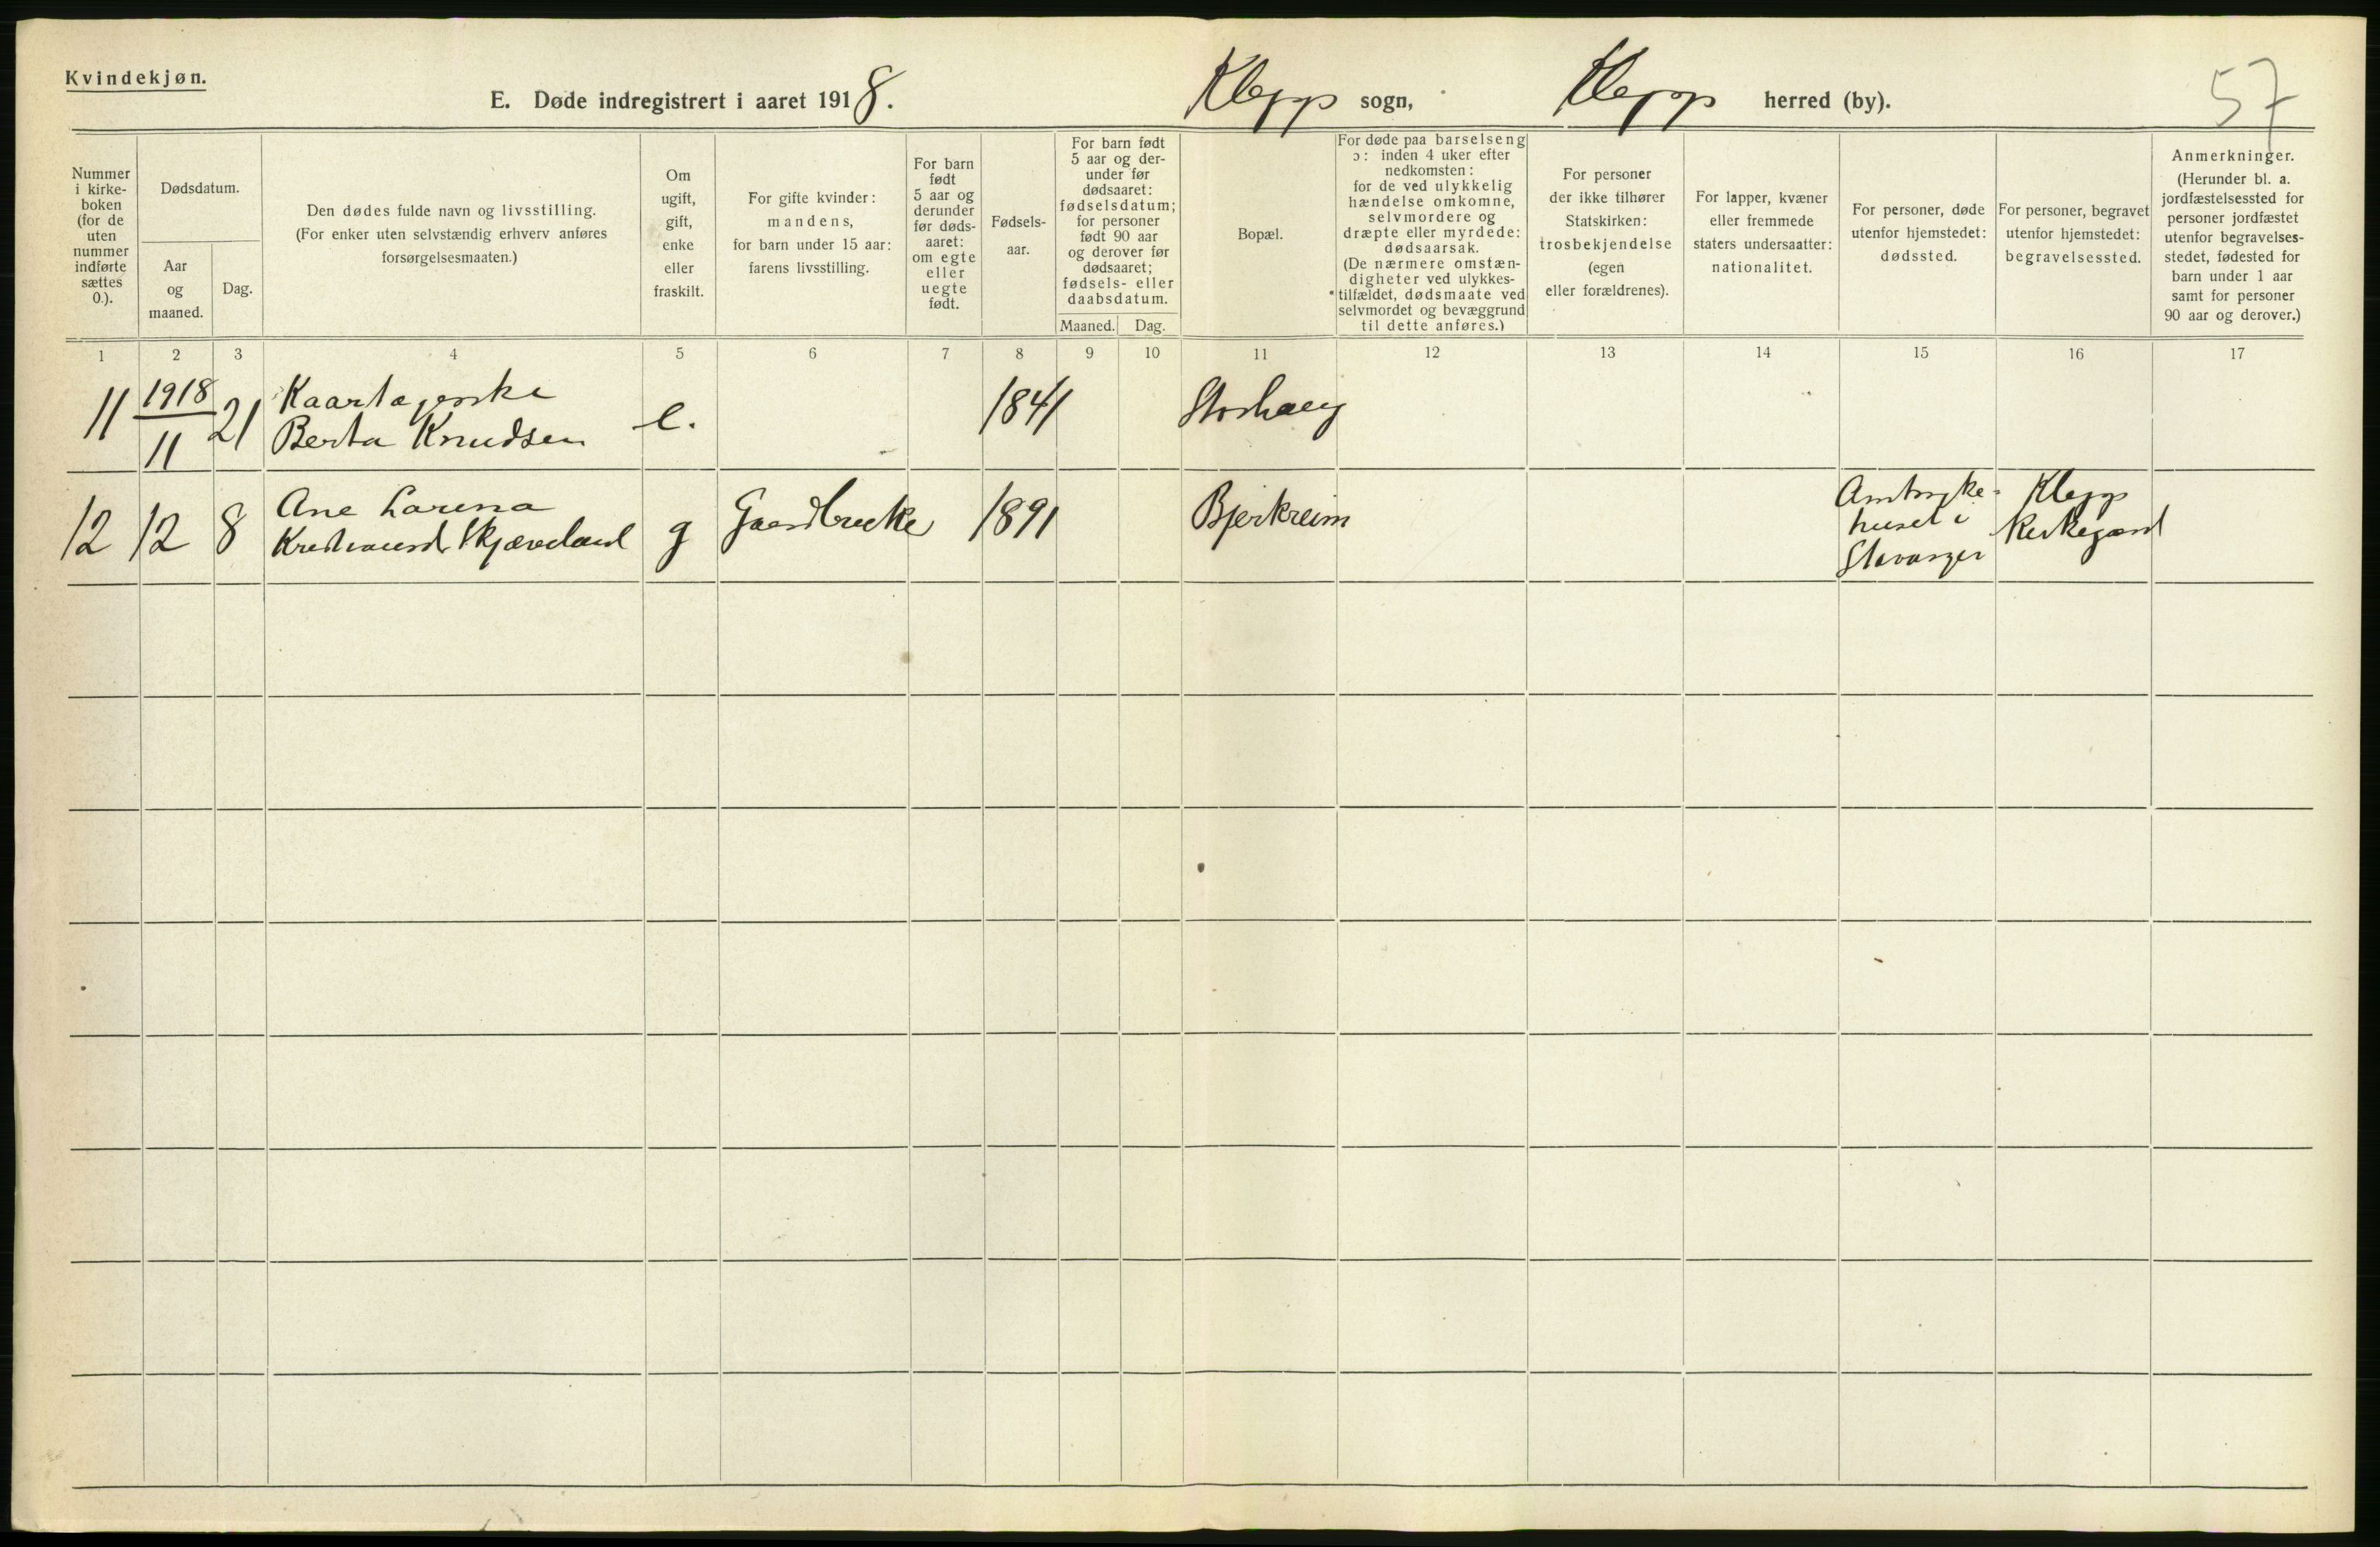 Kvindekjøn.
E. Døde indregistrert i aaret 1918. Klepp sogn, Klepp herred (by).
57
Nummer i kirkeboken (for de uten nummer indførte sættes 0.).
Dødsdatum.
Aar og maaned.
Dag.
Den dødes fulde navn og livsstilling.
(For enker uten selvstændig erhverv anføres
forsørgelsesmaaten.)
Om ugift, gift, enke eller fraskilt.
For gifte kvinder: mandens, for barn under 15 aar: farens livsstilling.
For barn født 5 aar og derunder før dødsaaret: om egte eller uegte født.
Fødselsaar.
For barn født 5 aar og derunder før dødsaaret: fødselsdatum; for personer født 90 aar og derover før dødsaaret; fødsels- eller daabsdatum.
Maaned. Dag.
Bopæl.
For døde paa barselseng ɔ: inden 4 uker efter nedkomsten: for de ved ulykkelig hændelse omkomne, selvmordere og dræpte eller myrdede: dødsaarsak. (De nærmere omstændigheter ved ulykkestilfældet, dødsmaate ved selvmordet og bevæggrund til dette anføres.)
For personer der ikke tilhører Statskirken: trosbekjendelse (egen eller forældrenes).
For lapper, kvæner eller fremmede staters undersaatter: nationalitet.
For personer, døde utenfor hjemstedet: dødssted.
For personer, begravet utenfor hjemstedet: begravelsessted.
Anmerkninger. (Herunder bl. a. jordfæstelsessted for personer jordfæstet utenfor begravelsesstedet, fødested for barn under 1 aar samt for personer 90 aar og derover.)
1 2 3 4 5 6 7 8 9 10 11 12 13 14 15 16 17
11 1918 11 21
Berta Knudsen e. 1841 Storhaug
12 12 8 Ane Larena
Skjæveland g Gaardbruker 1891 Bjerkreim
huset i
Stavanger
Klepp
Kirkegaard